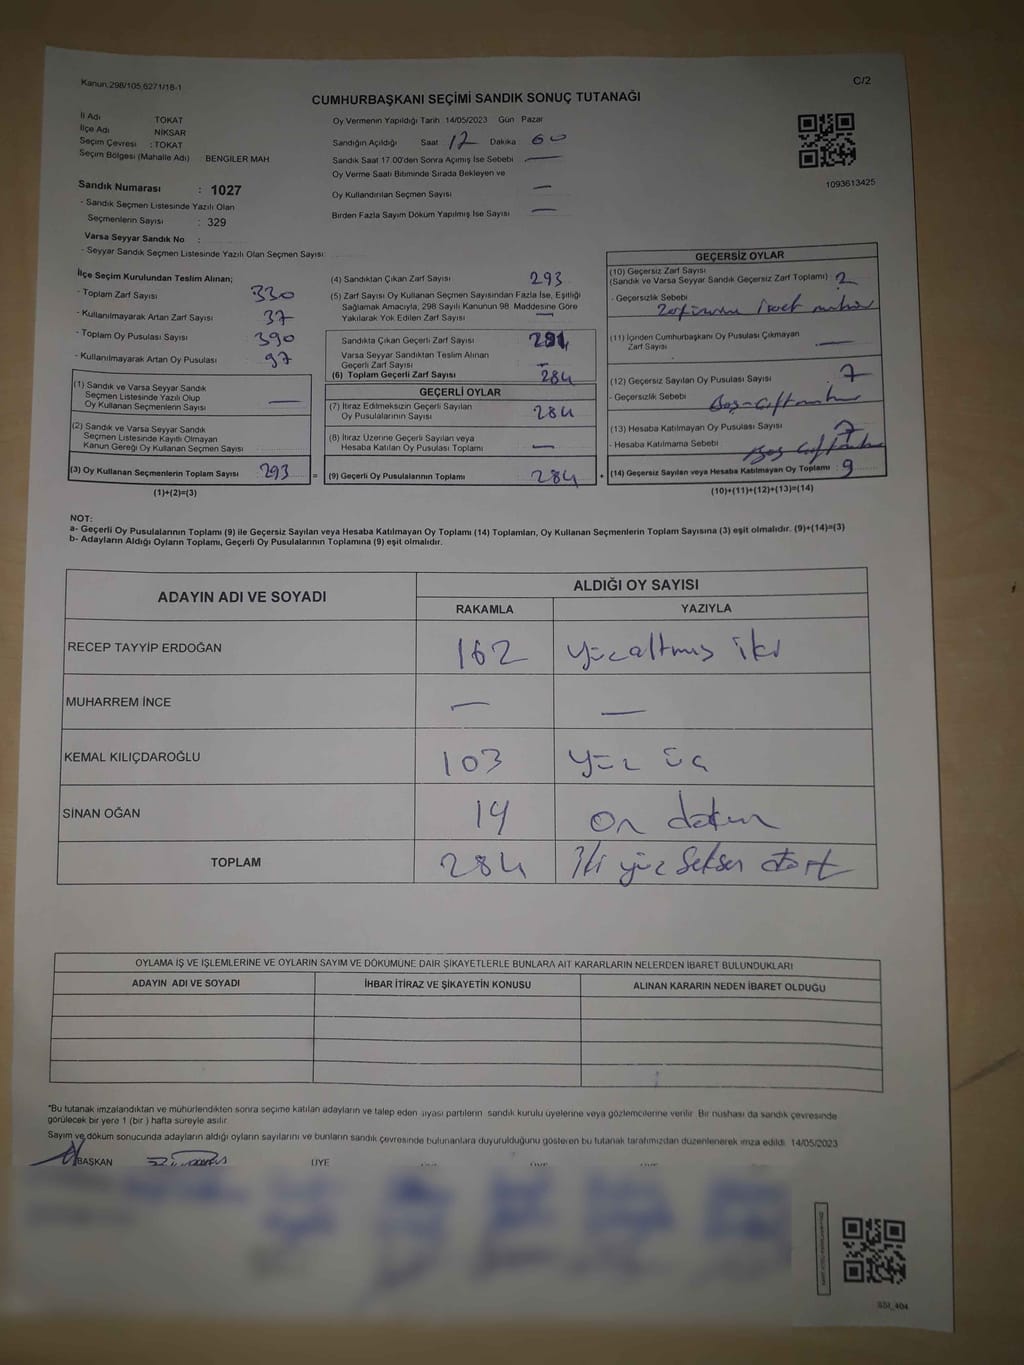 Kanun:298/105,6271/18-1
C/2
CUMHURBAŞKANI SEÇİMİ SANDIK SONUÇ TUTANAĞI
İl Adı TOKAT
İlçe Adı NİKSAR
Seçim Çevresi : TOKAT
Seçim Bölgesi (Mahalle Adı) : BENGİLER MAH
Sandık Numarası : 1027
- Sandık Seçmen Listesinde Yazılı Olan
Seçmenlerin Sayısı : 329
Varsa Seyyar Sandık No :
- Seyyar Sandık Seçmen Listesinde Yazılı Olan Seçmen Sayısı:
Oy Vermenin Yapıldığı Tarih 14/05/2023 Gün Pazar
Sandığın Açıldığı Saat 17 Dakika 60
Sandık Saat 17.00'den Sonra Açımış İse Sebebi —
Oy Verme Saati Bitiminde Sırada Bekleyen ve
Oy Kullandırılan Seçmen Sayısı —
Birden Fazla Sayım Döküm Yapılmış İse Sayısı —
1093613425
İlçe Seçim Kurulundan Teslim Alınan;
- Toplam Zarf Sayısı 330
- Kullanılmayarak Artan Zarf Sayısı 37
- Toplam Oy Pusulası Sayısı 390
- Kullanılmayarak Artan Oy Pusulası 97
(1) Sandık ve Varsa Seyyar Sandık
Seçmen Listesinde Yazılı Olup
Oy Kullanan Seçmenlerin Sayısı —
(2) Sandık ve Varsa Seyyar Sandık
Seçmen Listesinde Kayıtlı Olmayan
Kanun Gereği Oy Kullanan Seçmen Sayısı
(3) Oy Kullanan Seçmenlerin Toplam Sayısı 293 =
(1)+(2)=(3)
(4) Sandıktan Çıkan Zarf Sayısı 293
(5) Zarf Sayısı Oy Kullanan Seçmen Sayısından Fazla İse, Eşitliği
Sağlamak Amacıyla, 298 Sayılı Kanunun 98. Maddesine Göre
Yakılarak Yok Edilen Zarf Sayısı —
Sandıkta Çıkan Geçerli Zarf Sayısı 291
Varsa Seyyar Sandıktan Teslim Alınan
Geçerli Zarf Sayısı —
(6) Toplam Geçerli Zarf Sayısı 284
GEÇERLİ OYLAR
(7) İtiraz Edilmeksizin Geçerli Sayılan
Oy Pusulalarının Sayısı 284
(8) İtiraz Üzerine Geçerli Sayılan veya
Hesaba Katılan Oy Pusulası Toplamı —
(9) Geçerli Oy Pusulalarının Toplamı 284 +
GEÇERSİZ OYLAR
(10) Geçersiz Zarf Sayısı
(Sandık ve Varsa Seyyar Sandık Geçersiz Zarf Toplamı) 2
- Geçersizlik Sebebi
(11) İçinden Cumhurbaşkanı Oy Pusulası Çıkmayan
Zarf Sayısı —
(12) Geçersiz Sayılan Oy Pusulası Sayısı 7
- Geçersizlik Sebebi
(13) Hesaba Katılmayan Oy Pusulası Sayısı 7
- Hesaba Katılmama Sebebi
(14) Geçersiz Sayılan veya Hesaba Katılmayan Oy Toplamı : 9
(10)+(11)+(12)+(13)=(14)
NOT:
a- Geçerli Oy Pusulalarının Toplamı (9) ile Geçersiz Sayılan veya Hesaba Katılmayan Oy Toplamı (14) Toplamları, Oy Kullanan Seçmenlerin Toplam Sayısına (3) eşit olmalıdır. (9)+(14)=(3)
b- Adayların Aldığı Oyların Toplamı, Geçerli Oy Pusulalarının Toplamına (9) eşit olmalıdır.
ADAYIN ADI VE SOYADI
ALDIĞI OY SAYISI
RAKAMLA YAZIYLA
RECEP TAYYİP ERDOĞAN 162 yüzaltmış iki
MUHARREM İNCE — —
KEMAL KILIÇDAROĞLU 103 yüz üç
SİNAN OĞAN 19 on dokuz
TOPLAM 284 iki yüz seksen dört
OYLAMA İŞ VE İŞLEMLERİNE VE OYLARIN SAYIM VE DÖKÜMÜNE DAİR ŞİKAYETLERLE BUNLARA AİT KARARLARIN NELERDEN İBARET BULUNDUKLARI
ADAYIN ADI VE SOYADI İHBAR İTİRAZ VE ŞİKAYETİN KONUSU ALINAN KARARIN NEDEN İBARET OLDUĞU
*Bu tutanak imzalandıktan ve mühürlendikten sonra seçime katılan adayların ve talep eden siyasi partilerin sandık kurulu üyelerine veya gözlemcilerine verilir. Bir nüshası da sandık çevresinde
görülecek bir yere 1 (bir ) hafta süreyle asılır.
Sayım ve döküm sonucunda adayların aldığı oyların sayılarını ve bunların sandık çevresinde bulunanlara duyurulduğunu gösteren bu tutanak tarafımızdan düzenlenerek imza edildi. 14/05/2023
BAŞKAN ÜYE
SSI_404